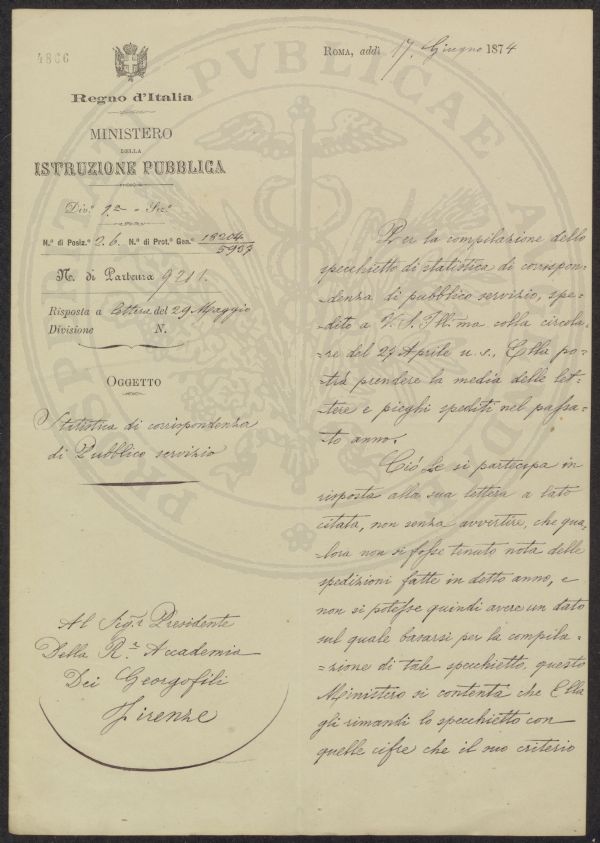 4866
ROMA, addì 17. Giugno 1874
Regno d'Italia
MINISTERO
DELLA
ISTRUZIONE PUBBLICA
Div.e 1.a - Sez.e
N.o di Posiz.e 26. N.o di Prot.o Gen.e 18204
5927
N. di Partenza 9211.
Risposta a lettera del 29 Maggio
Divisione N.
OGGETTO
Statistica di corrispondenza
di Pubblico servizio
Al Sig.r Presidente
Della R.a Accademia
Dei Georgofili
Firenze
Per la compilazione dello
specchietto di statistica di corrispon-
-denza di pubblico servizio, spe-
-dito a V. S. Ill.ma colla circola-
-re del 27 Aprile u. s., Ella po-
-trà prendere la media delle let-
-tere e pieghi spediti nel passa-
-to anno.
Ciò Le si partecipa in
risposta alla sua lettera a lato
citata, non senza avvertire, che qua-
-lora non si fosse tenuto nota delle
spedizioni fatte in detto anno, e
non si potesse quindi avere un dato
sul quale basarsi per la compila-
-zione di tale specchietto, questo
Ministero si contenta che Ella
gli rimandi lo specchietto con
quelle cifre che il suo criterio
PUBLICAE